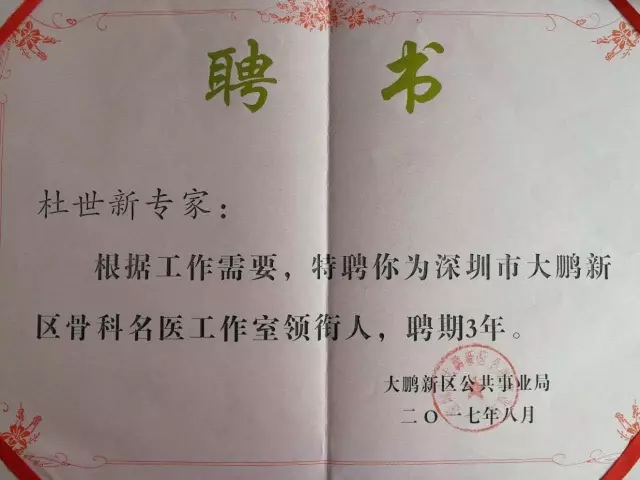 聘 书
杜世新专家：
根据工作需要，特聘你为深圳市大鹏新
区骨科名医工作室领衔人，聘期3年。
大鹏新区公共事业局
二〇一七年八月